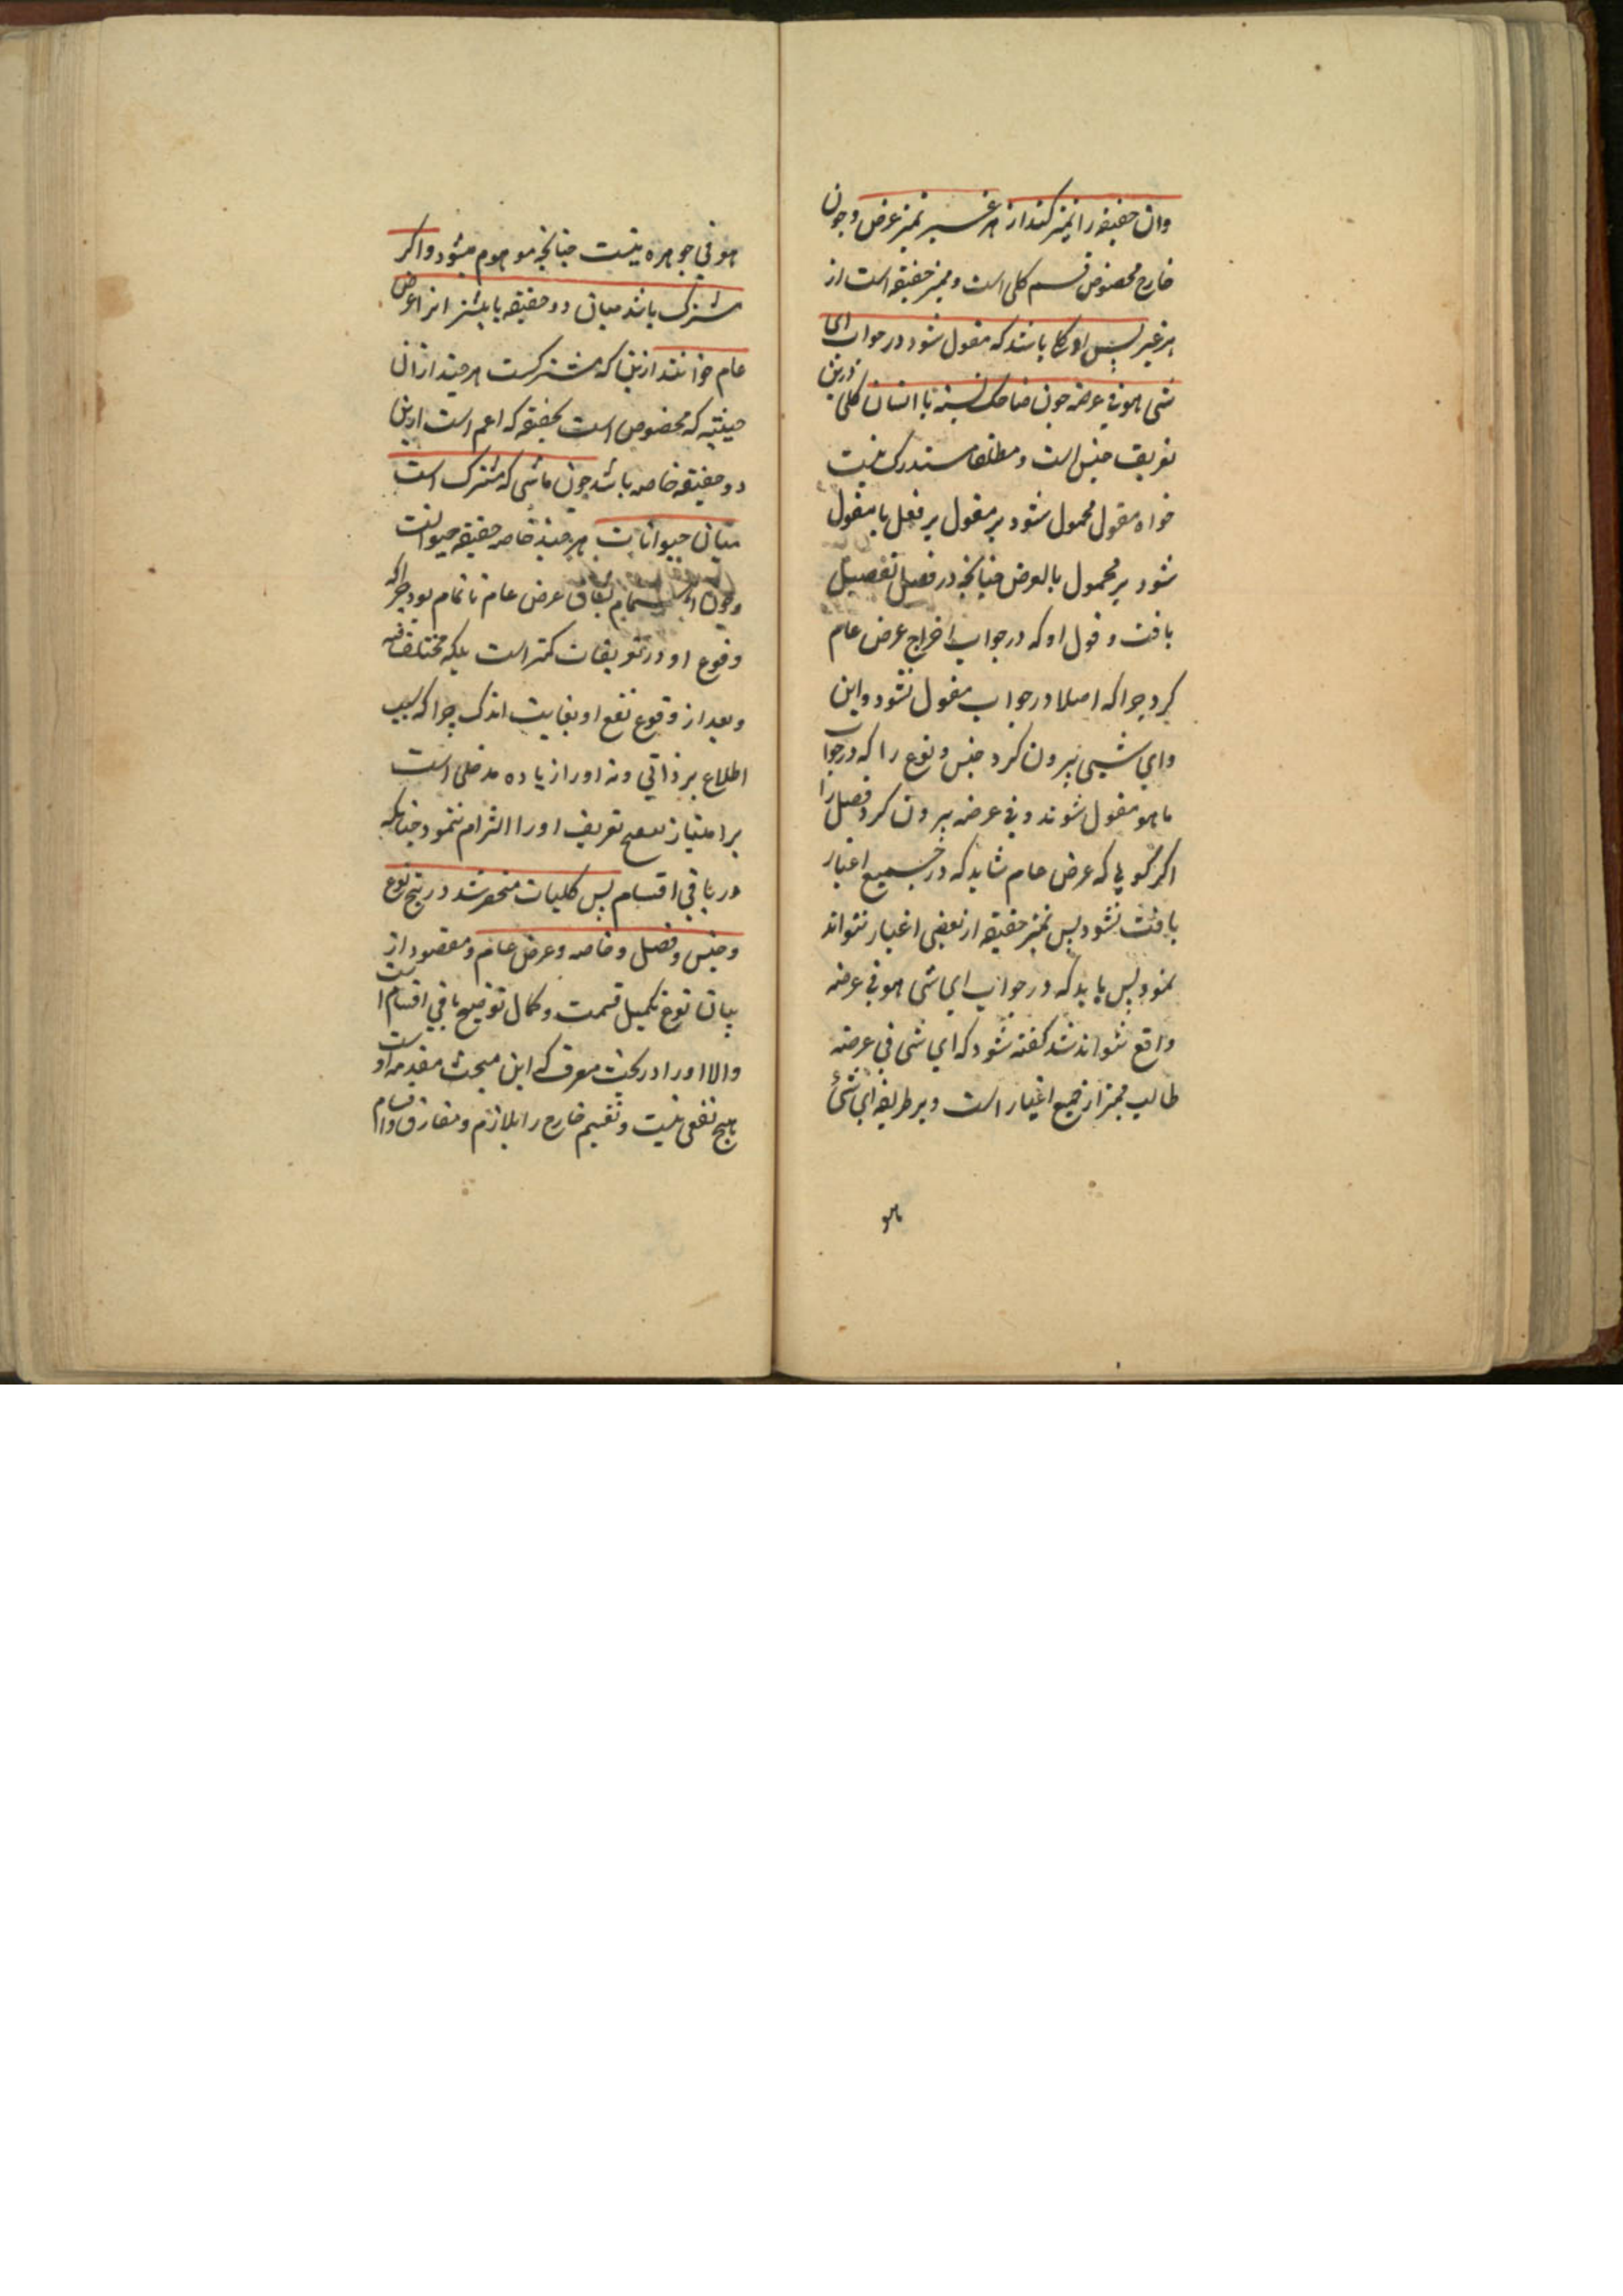 وان حقیقه را تمیز کند از هر غیر تمیز عرضی و چون
خارج مخصوص قسم کلی است و ممیز حقیقه است از
هر غیر پس او کلی باشد که مقول شود در جواب ای
شی هو فی عرضه چون ضاحک نسبة با انسان کلی درین
تعریف جنس است و مطلقا مستدرک نیست
خواه مقول محمول شود بر مقول بر فعل یا مقول
شود بر محمول بالعرض چنانچه در فصل تفصیل
یافت و قول او که در جواب اخراج عرض عام
کرد چرا که اصلا در جواب مقول نشود و این
وای شیی بیرون کرد جنس و نوع را که در جواب
ما هو مقول شوند و فی عرضه بیرون کرد فصل را
اکر کویی که عرض عام شاید که در جمیع اغیار
یافت نشود پس تمیز حقیقه از بعضی اغیار نتواند
نمود پس باید که در جواب ای شی هو فی عرضه
واقع تواند شد کفته شود که ای شی فی عرضه
طالب ممیز از جمیع اغیار است و بر طریقه ای شئ
هو
هو فی جوهره نیست چنانچه موهوم میشود و اکر
مشترک باشد میان دو حقیقه یا بیشتر انرا عرض
عام خوانند ازین که مشترکست هر چند ازان
حیثیه که مخصوص است بحقیقه که اعم است ازین
دو حقیقه خاصه باشد چون ماشی که مشترک است
میان حیوانات هر چند خاصه حقیقه حیوانست
وچون عرض عام ناتمام بود چرا که
وقوع او در تعریفات کمتر است بلکه مختلف فیه
وبعد از وقوع نفع او بغایت اندک چرا که بسبب
اطلاع بر ذاتی ونه او را زیاده مدخلی است
بر امتیاز تعریف او را التزام ننمود چنانکه
در باقی اقسام پس کلیات منحصر شد در پنج نوع
وجنس وفصل وخاصه وعرض عام ومقصود از
بیان نوع تکمیل قسمت وکمال توضیح باقی اقسام است
والا او را در بحث معرف که این مبحث مقدمه اوست
هیچ نفعی نیست وتقسیم خارج را بلازم ومفارق واقسام